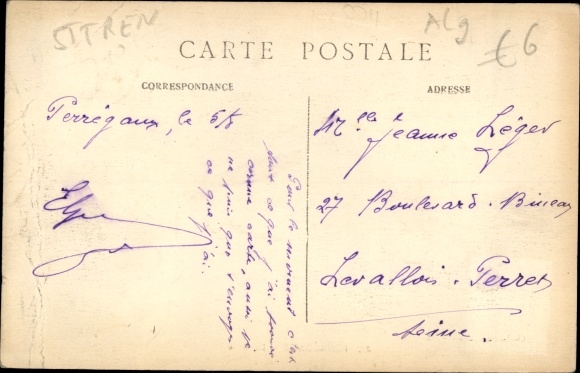 SITREN
Alg
€6
CARTE POSTALE
CORRESPONDANCE
ADRESSE
Perrégaux, le 5/8
Pour le moment c'est
tout ce que j'ai
comme carte, aussi je
ne puis que t'envoyer
ce que j'ai.
Mlle Jeanne Léger
27 Boulevard. Bineau
Levallois. Perret
Seine.